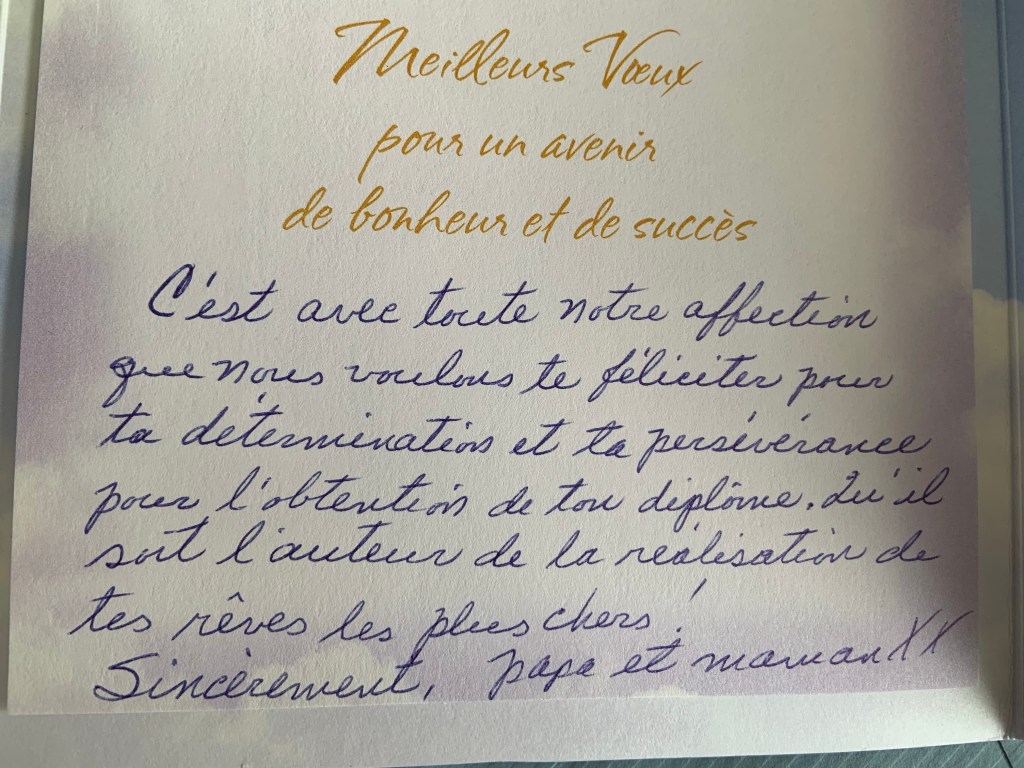 Meilleurs Vœux
pour un avenir
de bonheur et de succès
C'est avec toute notre affection
que nous voulons te féliciter pour
ta détermination et ta persévérance
pour l'obtention de ton diplôme. Qu'il
soit l'auteur de la réalisation de
tes rêves les plus chers!
Sincèrement, papa et maman XX